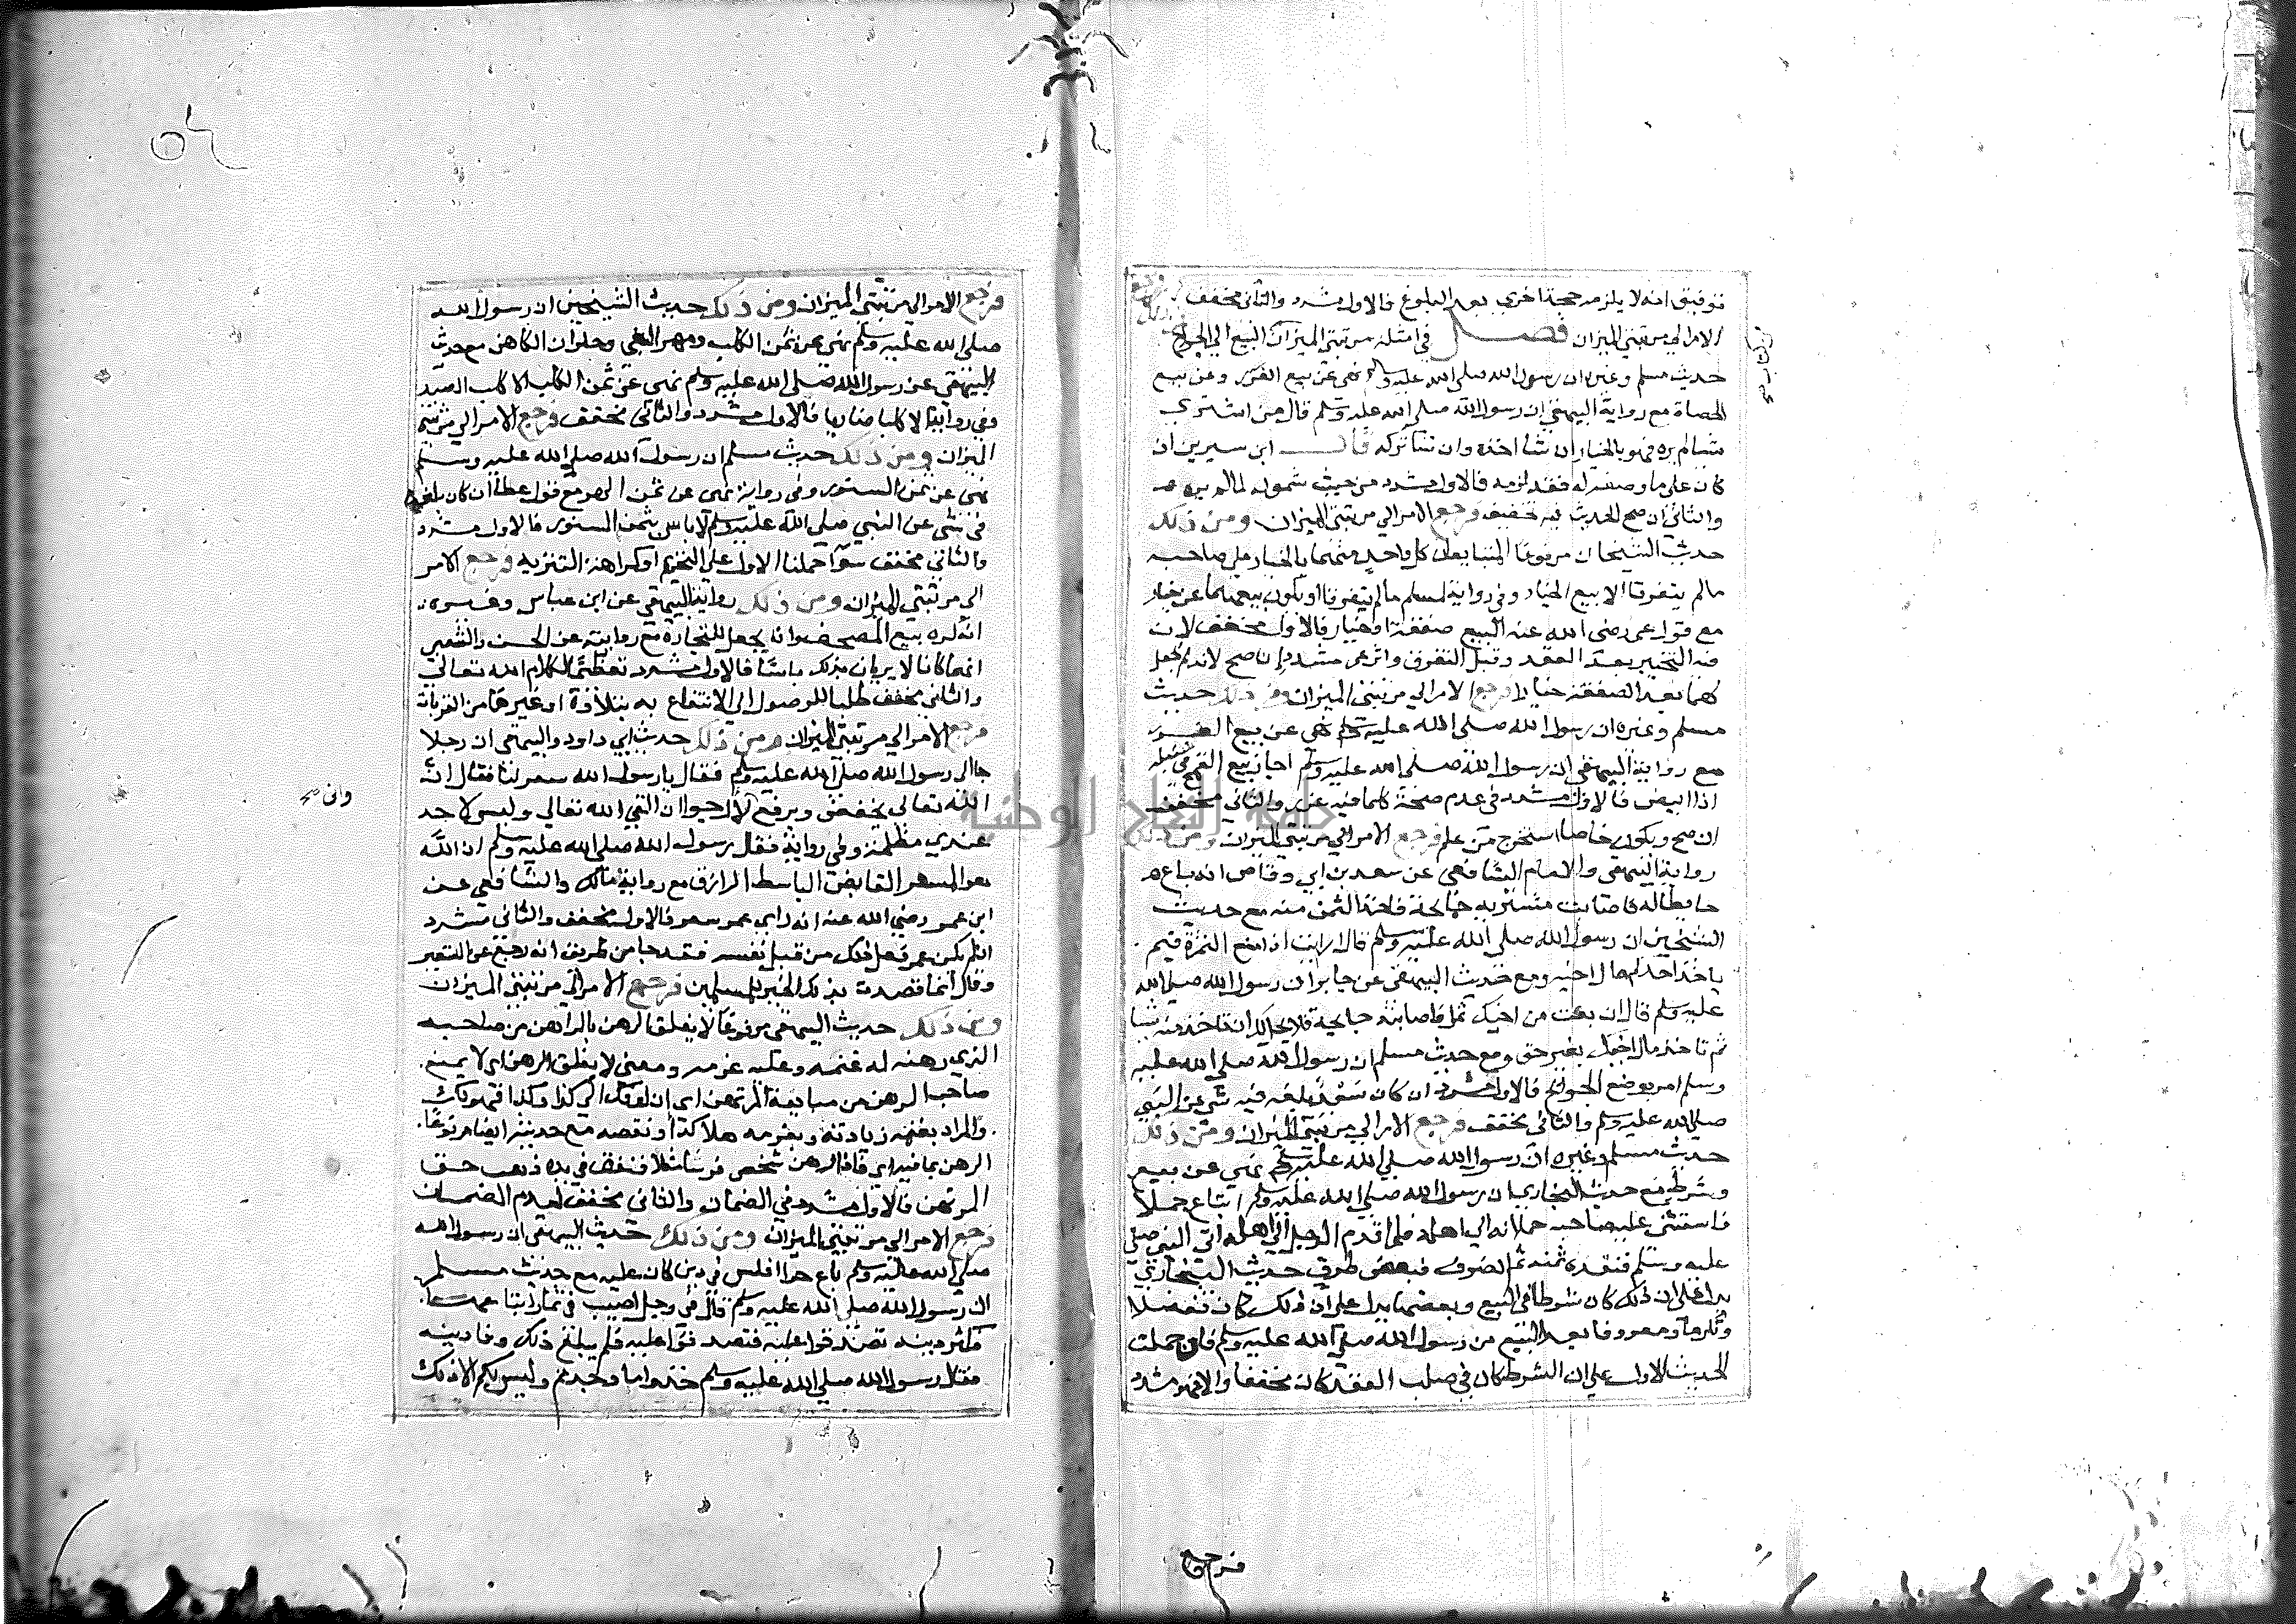 فوفيق انه لا يلزمه حجة اخري بعد البلوغ فالاول مشدد والثاني مخفف فرجع
الامر الي مرتبتي الميزان فصل في امثلة مرتبتي الميزان البيع الي الجراح
حديث مسلم وغيره ان رسول الله صلي الله عليه وسلم نهي عن بيع الغرر وعن بيع
الحصاة مع رواية البيهقي ان رسول الله صلي الله عليه وسلم قال من اشتري
شيا لم يره فهو بالخيار ان شا اخذه وان شا تركه قال ابن سيرين ان
كان علي ما وصفه له فقد لزمه فالاول مشدد من حيث شموله لما لم يره
والثاني ان صح الحديث فيه تخفيف فرجع الامر الي مرتبتي الميزان ومن ذلك
حديث الشيخان مرفوعا المتبايعان كل واحد منهما بالخيار علي صاحبه
ما لم يتفرقا الا بيع الخيار وفي رواية لمسلم ما لم يتفرقا او يكون بيعهما عن خيار
مع قول عمر رضي الله عنه البيع صفقة او خيار فالاول مخفف لان
فيه التخيير بعد العقد وقبل التفرق واثر عمر مشدد ان صح لانه لم يجعل
لهما بعد الصفقة خيارا فرجع الامر الي مرتبتي الميزان ومن ذلك حديث
مسلم وغيره ان رسول الله صلي الله عليه وسلم نهي عن بيع الغرر
مع رواية البيهقي ان رسول الله صلي الله عليه وسلم اجاز بيع القمح في سنبله
اذا ابيض فالاول مشدد في عدم صحة كلما فيه غرر والثاني مخفف
ان صح ويكون خاصا استخرج من علم فرجع الامر الي مرتبتي الميزان ومن ذلك
رواية البيهقي والامام الشافعي عن سعد بن ابي وقاص انه باع
حايطا له فاصابت مشتريه جايحة فاخذ الثمن منه مع حديث
الشيخين ان رسول الله صلي الله عليه وسلم قال ارايت اذا منع الثمرة فبم
ياخذ احدكم مال اخيه ومع حديث البيهقي عن جابر ان رسول الله صلي الله
عليه وسلم قال ان بعت من اخيك ثمرا فاصابته جايحة فلا يحل لك ان تاخذ منه شيا
ثم تاخذ مال اخيك بغير حق ومع حديث مسلم ان رسول الله صلي الله عليه
وسلم امر بوضع الجوايح فالاول مشدد ان كان سعد بلغه فيه شي عن النبي
صلي الله عليه وسلم والثاني مخفف فرجع الامر الي مرتبتي الميزان ومن ذلك
حديث مسلم وغيره ان رسول الله صلي الله عليه وسلم نهي عن بيع
وشرط مع حديث البخاري ان رسول الله صلي الله عليه وسلم ابتاع جملا
فاستثني عليه صاحبه حملانه الي اهله فلما قدم الرجل الي اهله اتي النبي صلي
عليه وسلم فنقده ثمنه ثم انصرف فبعض طرق حديث البخاري
يدل علي ان ذلك كان شرطا في البيع وبعضها يدل علي ان ذلك كان تفضلا
وتكرما ومعروفا بعد البيع من رسول الله صلي الله عليه وسلم فان حملت
الحديث الاول علي ان الشرط كان في صلب العقد كان مخففا والا فهو مشدد
فرجع
فرجع الامر الي مرتبتي الميزان ومن ذلك حديث الشيخين ان رسول الله
صلي الله عليه وسلم نهي عن ثمن الكلب ومهر البغي وحلوان الكاهن مع حديث
البيهقي عن رسول الله صلي الله عليه وسلم نهي عن ثمن الكلب الا كلب الصيد
وفي رواية الا كلبا ضاريا فالاول مشدد والثاني مخفف فرجع الامر الي مرتبتي
الميزان ومن ذلك حديث مسلم ان رسول الله صلي الله عليه وسلم
نهي عن ثمن السنور وفي رواية نهي عن ثمن الهر مع قول عطا ان كان بلغه
في شي عن النبي صلي الله عليه وسلم لا باس بثمن السنور فالاول مشدد
والثاني مخفف سوا حملنا الاول علي التحريم او كراهة التنزيه فرجع الامر
الي مرتبتي الميزان ومن ذلك رواية البيهقي عن ابن عباس وغيره
انه كره بيع المصحف وانه يجعل للتجارة مع روايته عن الحسن والشعبي
انهما كانا لا يريان بذلك باسا فالاول مشدد تعظيما لكلام الله تعالي
والثاني مخفف طلبا للوصول الي الانتفاع به بتلاوة او غيرها من القربات
فرجع الامر الي مرتبتي الميزان ومن ذلك حديث ابي داود والبيهقي ان رجلا
جا الي رسول الله صلي الله عليه وسلم فقال يا رسول الله سعر لنا فقال ان
الله تعالي يخفض ويرفع لارجوا ان القي الله تعالي وليس لاحد
واني صح
عندي مظلمة وفي رواية فقال رسول الله صلي الله عليه وسلم ان الله
هو المسعر القابض الباسط الرازق مع رواية مالك والشافعي عن
ابن عمر رضي الله عنه انه راي عمر سعر فالاول مخفف والثاني مشدد
ان لم يكن عمر فعل ذلك من قبل نفسه فقد جا من طريق انه رجع عن التسعير
وقال انما قصدت بذلك الخير للمسلمين فرجع الامر الي مرتبتي الميزان
ومن ذلك حديث البيهقي مرفوعا لا يغلق الرهن بالراهن من صاحبه
الذي رهنه له غنمه وعليه غرمه ومعني لا يغلق الرهن اي لا يمنع
صاحب الرهن من مبايعة المرتهن اي ان لم اتك الي كذا وكذا فهو لك
والمراد بغنمه زيادته وبغرمه هلاكه او نقصه مع حديثه ايضا مرفوعا
الرهن بما فيه اي فاذا رهن شخص فرسا مثلا فنفق في يده ذهب حق
المرتهن فالاول مشدد في الضمان والثاني مخفف لعدم الضمان
فرجع الامر الي مرتبتي الميزان ومن ذلك حديث البيهقي ان رسول الله
صلي الله عليه وسلم باع حرا افلس في دين كان عليه مع حديث مسلم
ان رسول الله صلي الله عليه وسلم قال في رجل اصيب في ثمار ابتاعها
فكثر دينه تصدقوا عليه فتصدقوا عليه فلم يبلغ ذلك وفا دينه
فقال رسول الله صلي الله عليه وسلم خذوا ما وجدتم وليس لكم الا ذلك
جامعة النجاح الوطنية